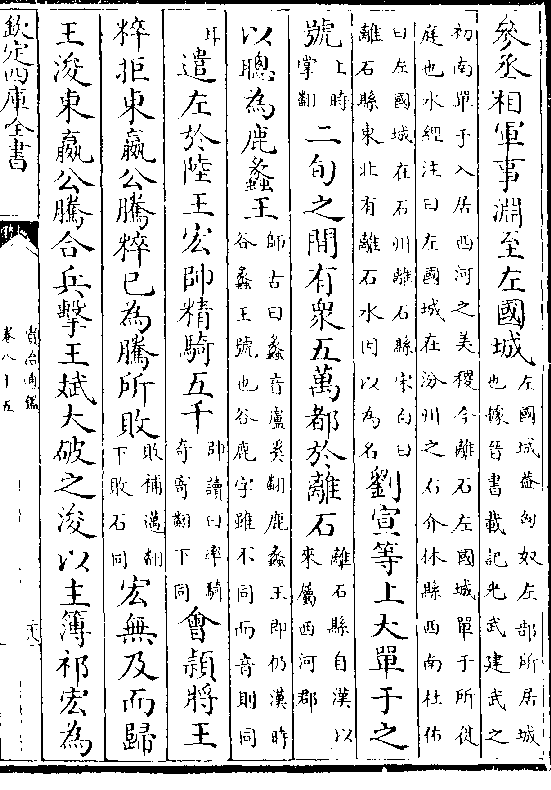 參丞相軍事淵至左國城左國城蓋匈奴左部所居城也據晉書載記光武建武之
初南單于入居西河之美稷今離石左國城單于所徙庭也水經注曰左國城在汾州之右介休縣西南杜佑
曰左國城在石州離石縣宋白曰離石縣東北有離石水因以為名劉宣等上大單于之
號上時掌翻二旬之間有衆五萬都於離石離石縣自漢以來屬西河郡
以聰為鹿蠡王師古曰蠡音盧奚翻鹿蠡王即仍漢時谷蠡王號也谷鹿字雖不同而音則同
耳遣左於陸王宏帥精騎五千帥讀曰率騎奇寄翻下同會潁將王
粹拒東嬴公騰粹已為騰所敗敗補邁翻下敗石同宏無及而歸
王浚東嬴公騰合兵擊王斌大破之浚以主簿祁宏為
欽定四庫全書
資治通鑑
卷八十五